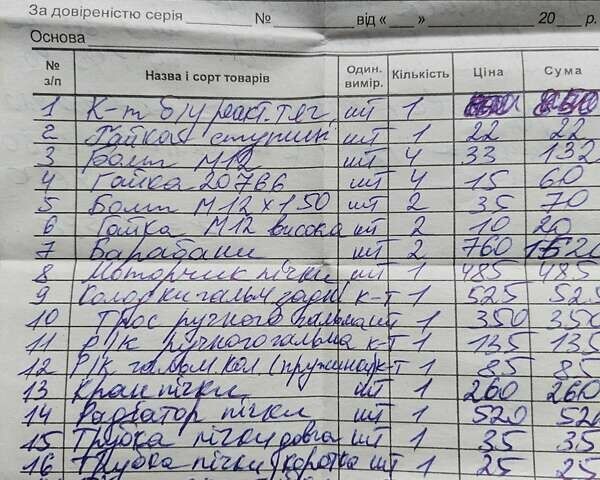 За довіреністю серія № від « » 20 р.
Основа
№ з/п Назва і сорт товарів Один. вимір. Кількість Ціна Сума
1 К-т б/у реакт. тяг. шт 1
2 Гайка ступиц шт 1 22 22
3 Болт М12 шт 4 33 132
4 Гайка 20766 шт 4 15 60
5 Болт М12х1.50 шт 2 35 70
6 Гайка М12 висока шт 2 10 20
7 Барабани шт 2 760 1520
8 Моторчик пічки шт 1 485 485
9 Колодки гальм задні к-т 1 525 525
10 Трос ручного гальма шт 1 350 350
11 Р/к ручного гальма к-т 1 135 135
12 Р/к гальм кол (пружина) к-т 1 85 85
13 Кран пічки шт 1 260 260
14 Радіатор пічки шт 1 520 520
15 Трубка пічки довга шт 1 35 35
16 Трубка пічки коротка шт 1 25 25